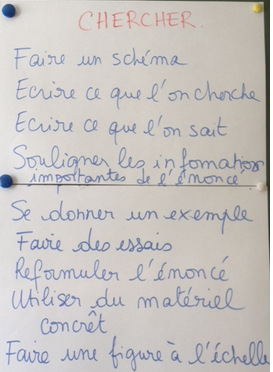 CHERCHER.
Faire un schéma
Ecrire ce que l'on cherche
Ecrire ce que l'on sait
Souligner les infomations
importantes de l'énoncé
Se donner un exemple
Faire des essais
Reformuler l'énoncé
Utiliser du matériel
concrêt
Faire une figure à l'échelle